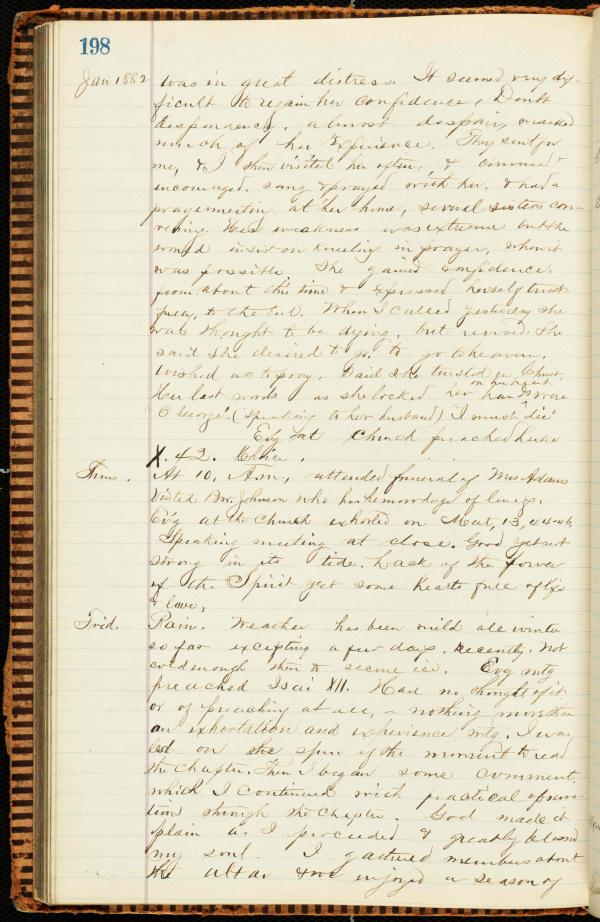 198
Jan 1882 was in great distress. It seemed very dif-
ficult to regain her confidence. Doubt
despondency, almost despair, marked
much of her Experience. They sent for
me, & I then visited her often, & conversed &
encouraged. sang & prayed with her. & had a
prayermeetin at her home, several sisters con-
vening. Her weakness was extreme but she
would insist on kneeling in prayer, when it
was possible. She gained confidence,
from about this time & expressed herself trust
fully, to the end. When I called yesterday she
was thought to be dying, but revived. She
said she desired to go, to go to heaven.
Wished us to pray. Said she trusted in Christ
Her last words as she locked her hands were
on her breast
"O George". (speaking to her husband) "I must die"
Evg at Church preached Luke
X. 42. Choice.
Thurs. At 10, A.m., attended funeral of Mrs Adams
Visted Bro. Johnson who has hemorrhage of lungs.
Ev'g at the Church exhorted on Mat, 13, 44-46
Speaking meeting at close. Good yet not
strong in its tide. Lack of the power
of the Spirit yet some hearts full of life
& love,
Frid. Rain. Weather has been mild all winter
so far excepting a few days, recently. Not
cold enough then to secure ice. Evg mtg
preached Isai XII. Had no thought of it
or of preaching at all, - nothing more than
an exhortation and experience mtg. I was
led on the spur of the moment to read
the chapter. Then I began some comment,
which I continued with practical observa-
tions through the chapter. God made it
plain as I proceeded & greatly blessed
my soul. I gathered members about
the altar & we enjoyed a season of